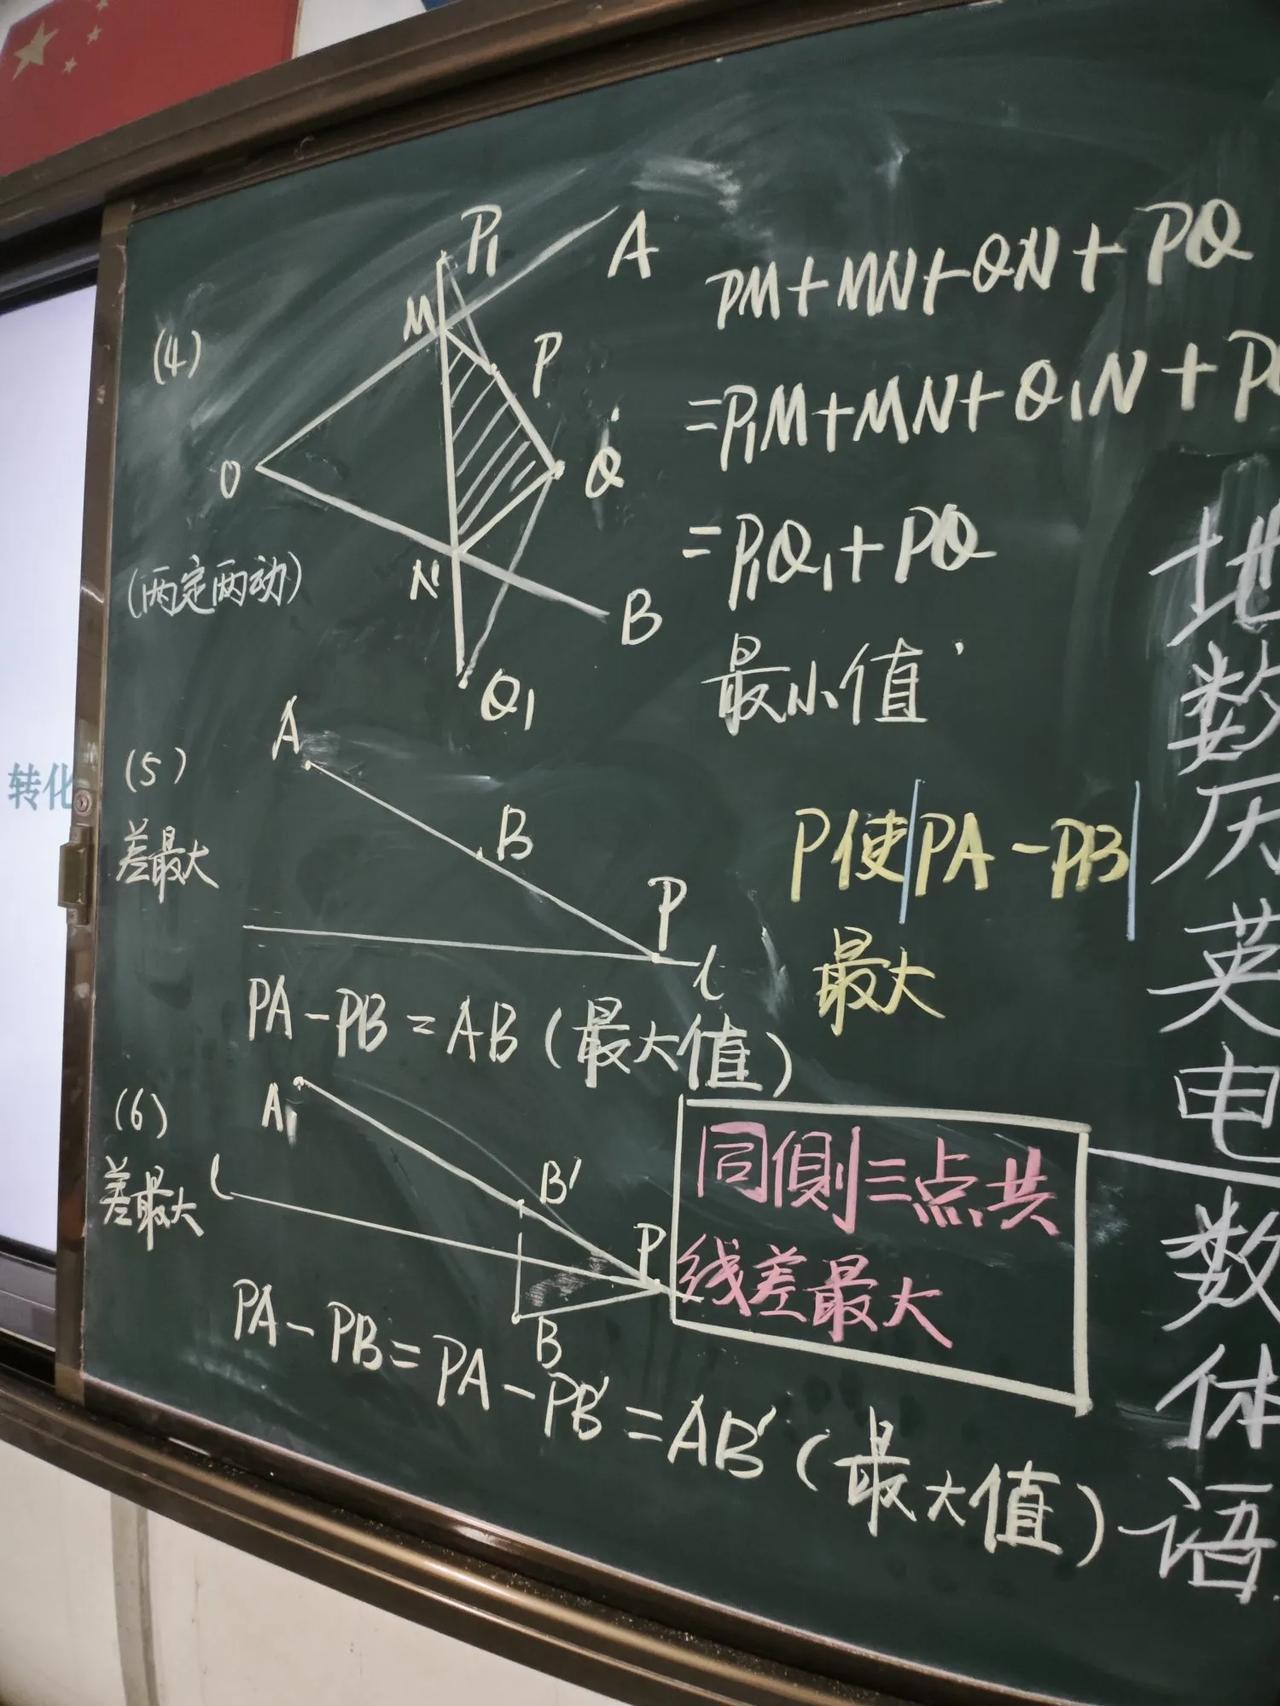 P₁
A
M
(4)
P
O
Q
(两定两动)
N
B
Q₁
PM+MN+QN+PQ
=P₁M+MN+Q₁N+P
=P₁Q₁+PQ
最小值
转化
(5)
差最大
A
B
P
l
P使|PA-PB|
最大
PA-PB=AB(最大值)
(6)
差最大
A
l
B'
P
B
同侧三点共
线差最大
PA-PB=PA-PB'=AB'(最大值)
地
数
历
英
电
数
体
语